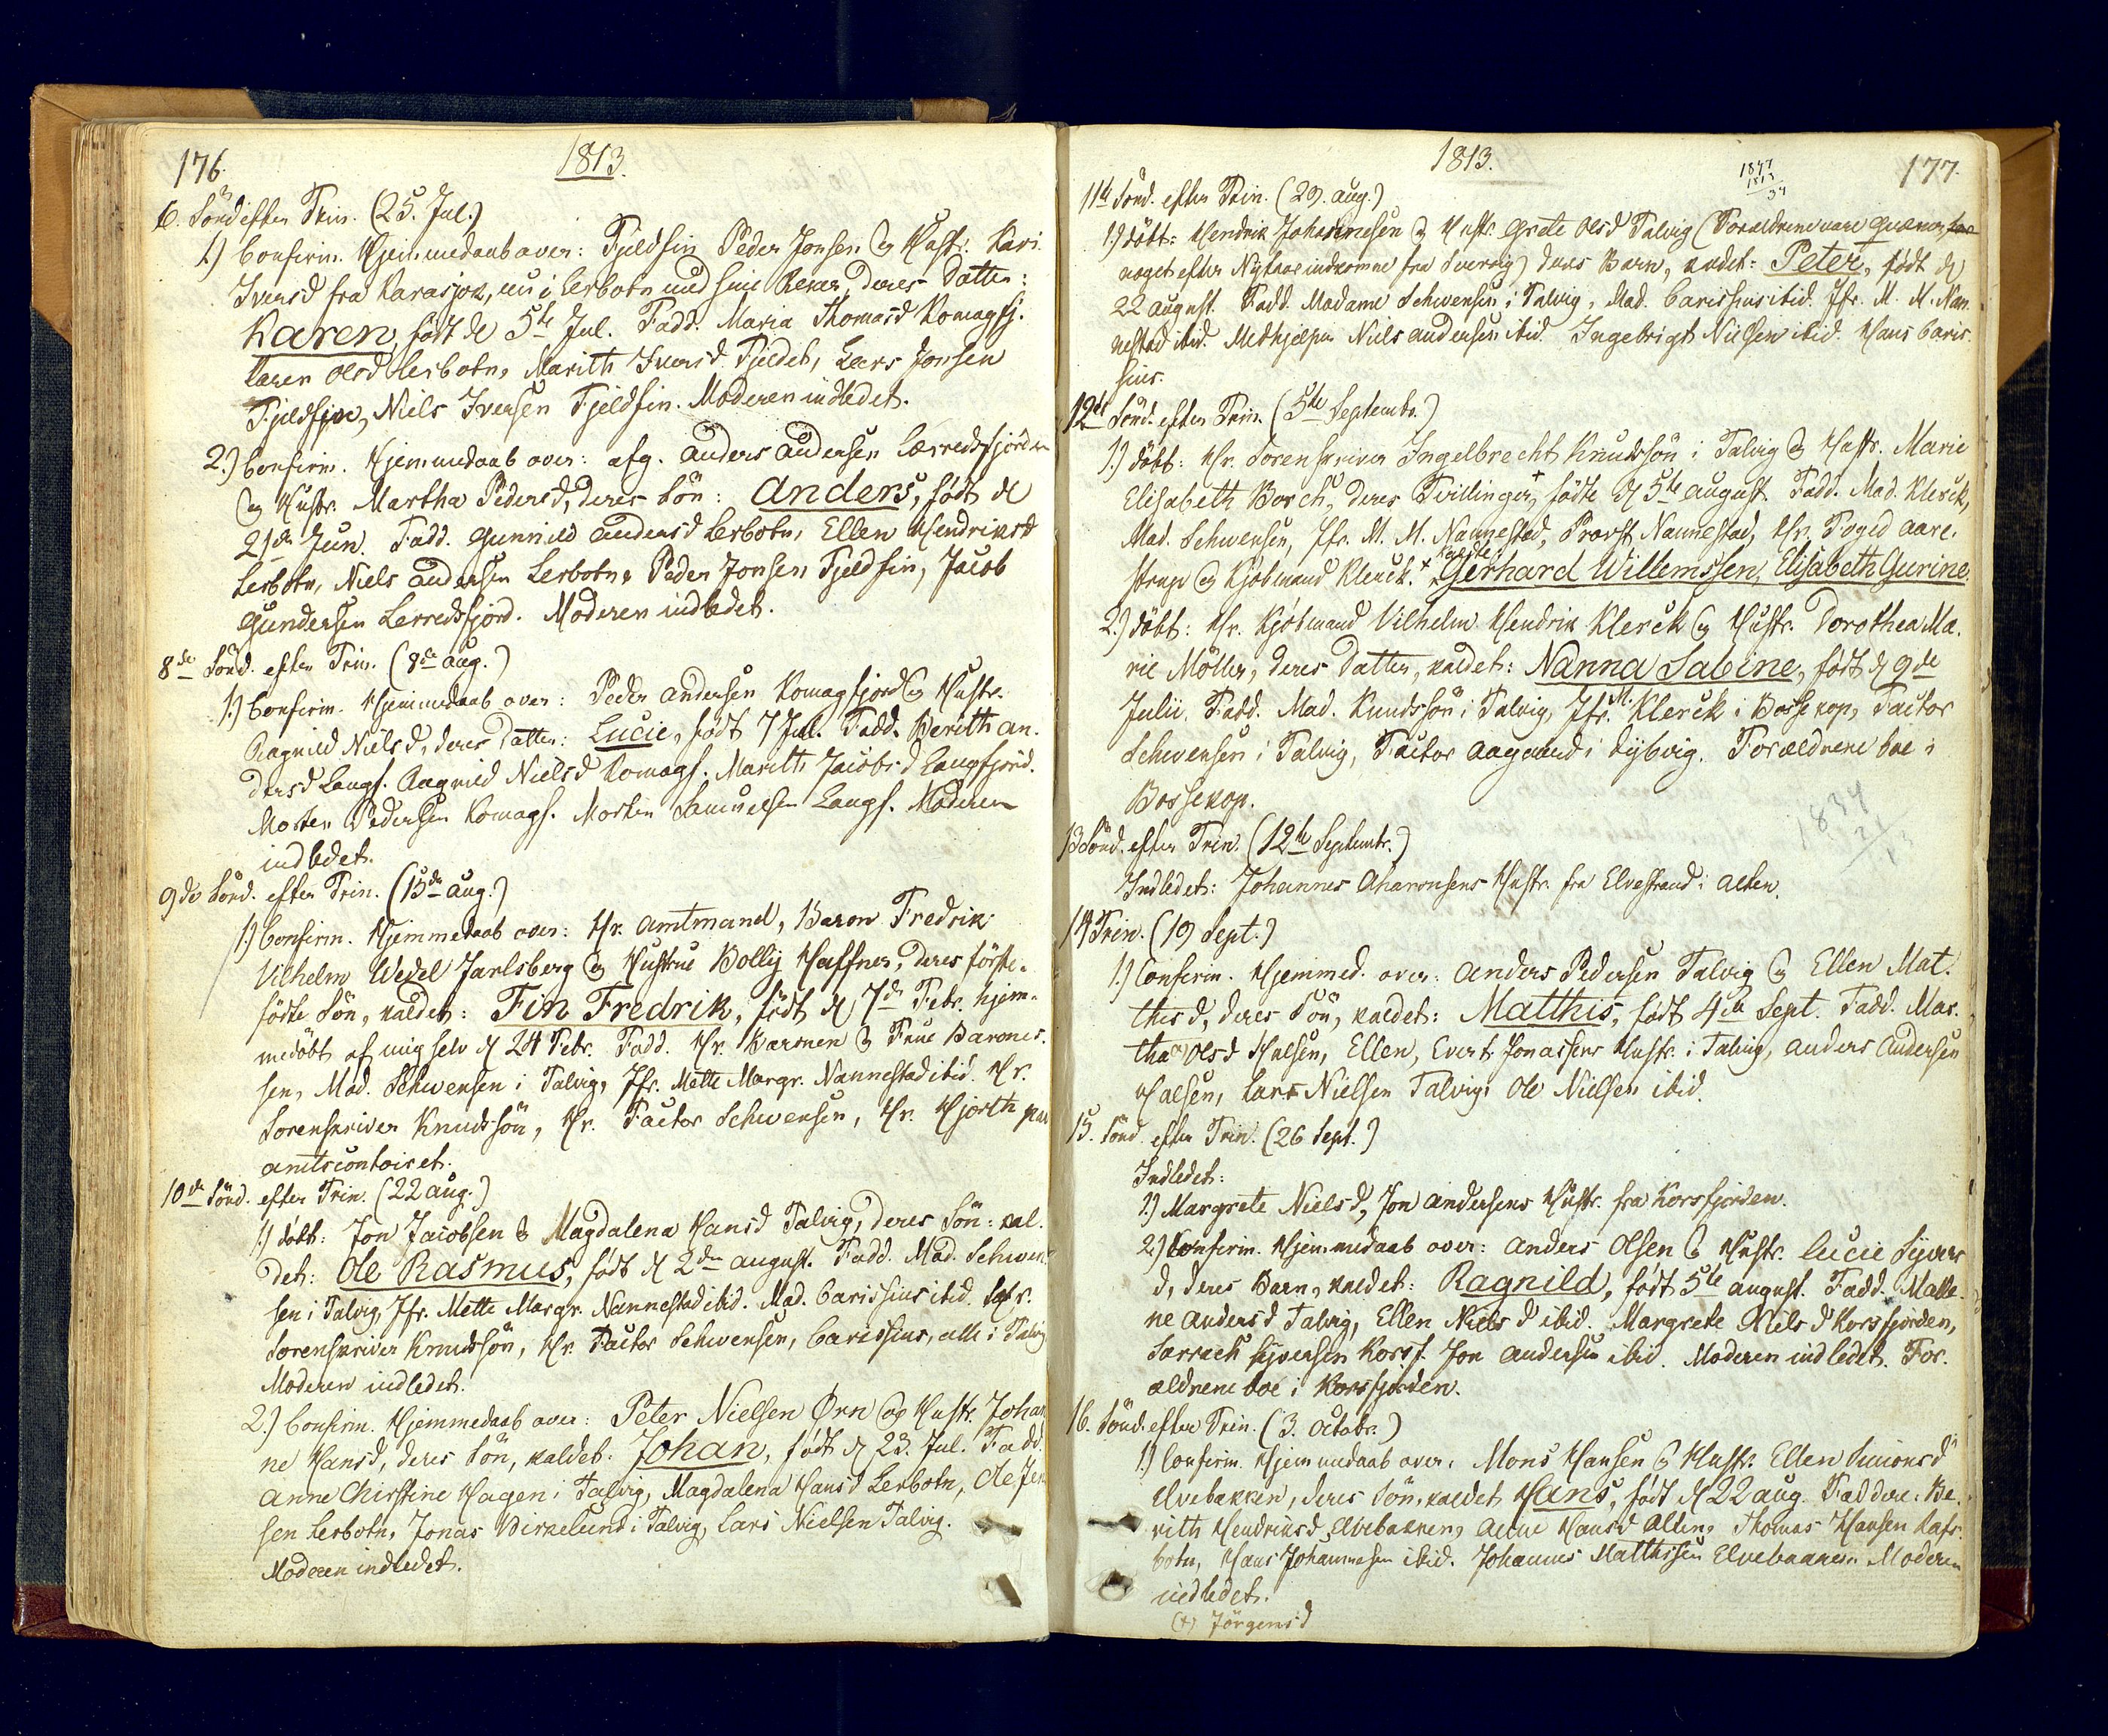 176.
1813.
6. Sönd efter Trin. (25. Jul.)
1.) Confirm. Hjemmedaab over: Fjeldfin Peder Jonsen og Hustr. Kari
Iversd fra Karasjok, nu i Lerbotn med sine Rener, deres Datter:
Karen, født d 5te Jul. Fadd. Maria Thomasd Komagfj.
Karen Olsd Lerbotn, Marith Iversd Fjeldet, Lars Jonsen
Fjeldfin, Niels Iversen Fjeldfin. Moderen indledet.
2.) Confirm. Hjemmedaab over: afg. Anders Andersen Lerredsfjorden
og Hustr. Martha Pedersd, deres Sön: Anders, født d
21de Jun. Fadd. Gunnild Andersd Lerbotn, Ellen Hendriksd
Lerbotn, Niels Andersen Lerbotn, Peder Jonsen Fjeldfin, Jacob
Gundersen Lerredsfjord. Moderen indledet.
8de Sönd. efter Trin. (8de Aug.)
1.) Confirm. Hjemmedaab over: Peder Andersen Komagfjord og Hustr.
Ragnild Nielsd, deres Datter: Lucie, født 7 Jul. Fadd. Berith An-
dersd Langf. Ragnild Nielsd Komagf. Marith Jacobsd Langfjord.
Morten Pedersen Komagf. Morten Samuelsen Langf. Moderen
indledet.
9de Sönd. efter Trin. (15de Aug.)
1.) Confirm. Hjemmedaab over: Hr. Amtmand, Baron Fredrik
Vilhelm Wedel Jarlsberg og Hustrue Bolly Haffner, deres förste-
födte Sön, kaldet: Fin Fredrik, født d 7de Febr. hjem-
medöbt af mig selv d 24 Febr. Fadd. Hr. Baronen & Frue Barones-
sen, Mad. Schwensen i Talvig, Jfr. Mette Margr. Nannestad ibid. Hr.
Sorenskriver Knudssön, Hr. Factor Schwensen, Hr. Hjorth paa
Amtscontoiret.
10de Sönd. efter Trin. (22 Aug.)
1.) Döbt: Jon Jacobsen & Magdalena Hansd Talvig, deres Sön: kal-
det: Ole Rasmus, født d 2den August. Fadd. Mad. Schwen-
sen i Talvig, Jfr. Mette Margr. Nannestad ibid. Mad. Carissius ibid. Hr.
Sorenskriver Knudssön, Hr. Factor Schwensen, Carissius, alle i Talvig
Moderen indledet.
2.) Confirm. Hjemmedaab over: Peter Nielsen Ørn og Hustr. Johan
ne Hansd, deres Sön, kaldet: Johan, født d 23. Jul. Fadd.
Anne Chirstine Hagen i Talvig, Magdalena Hansd Lerbotn, Ole Jen
sen Lerbotn, Jonas Birkelund i Talvig, Lars Nielsen Talvig.
Moderen indledet.
1813.
1847
1813
34
177.
11te Sönd. efter Trin. (29. Aug.)
1.) Döbt: Hendrik Johannesen & Hustr. Grete Olsd Talvig (Forældrene vare Qvæner
noget efter Nytaar indkomne fra Sverrig) deres Barn, kaldet: Peter, født d
22 August. Fadd. Madame Schwensen i Talvig, Mad. Carissius ibid. Jfr. M. M. Nan-
nestad ibid. Medhjelper Niels Andersen ibid. Ingebrigt Nielsen ibid. Hans Caris-
sius.
12te Sönd. efter Trin. (5te Septembr.)
1.) Döbt: Hr. Sorenskriver Ingelbrecht Knudssön i Talvig & Hustr. Marie
Elisabeth Borch, deres Tvillinger,+ födte d 5te August. Fadd. Mad. Klerck,
Mad. Schwensen, Jfr. M. M. Nannestad, Provst Nannestad, Hr. Foged Aare-
strup og Kjöbmand Klerck. + kaldet Gerhard Willemssen, Elisabeth Gurine.
2.) Döbt: Hr. Kjöbmand Vilhelm Hendrik Klerck og Hustr. Dorothea Ma-
rie Möller, deres Datter, kaldet: Nanna Sabine, født d 9de
Julii. Fadd. Mad. Knudssön i Talvig, Jfr. M. Klerck i Bossekop, Factor
Schwensen i Talvig, Factor Aagaard i Dybvig. Forældrene boe i
Bossekop.
1834
21/13
13 Sönd. efter Trin. (12te Septembr.)
Indledet: Johannes Aharonsens Hustr. fra Elvestrand i Alten.
14 Trin. (19 Sept.)
1.) Confirm. Hjemmed. over: Anders Pedersen Talvig & Ellen Mat-
thisd, deres Sön, kaldet: Matthis, født 4de Sept. Fadd. Mar-
tha (+) Olsd Halsen, Ellen, Evert Jonassens Hustr. i Talvig, Anders Andersen
Halsen, Lars Nielsen Talvig, Ole Nielsen ibid.
15. Sönd. efter Trin. (26 Sept.)
Indledet:
1.) Margrete Nielsd, Jon Andersens Hustr. fra Korsfjorden.
2.) Confirm. Hjemmedaab over: Anders Olsen & Hustr. Lucie Syvers
d, deres Barn, kaldet: Ragnild, født 5te August. Fadd. Malle-
ne Andersd Talvig, Ellen Nielsd ibid. Margrete Nielsd Korsfjorden,
Sarrach Syversen Korsf. Jon Andersen ibid. Moderen indledet. For-
ældrene boe i Korsfjorden.
16. Sönd. efter Trin. (3. Octobr.)
1.) Confirm. Hjemmedaab over: Mons Hansen & Hustr. Ellen Simonsd
Elvebakken, deres Sön, kaldet Hans, født d 22 Aug. Faddere: Be-
rith Hendriksd Elvebakken, Anne Hansd Alten, Thomas Hansen Rafs-
botn, Hans Johannesen ibid. Johannes Matthissen Elvebakken. Moderen
indledet.
(+) Jörgensd